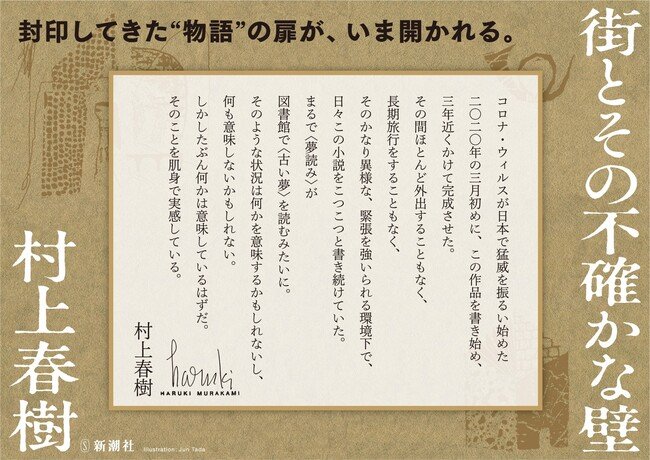 封印してきた“物語”の扉が、いま開かれる。
街とその不確かな壁
コロナ・ウィルスが日本で猛威を振るい始めた
二〇二〇年の三月初めに、この作品を書き始め、
三年近くかけて完成させた。
その間ほとんど外出することもなく、
長期旅行をすることもなく、
そのかなり異様な、緊張を強いられる環境下で、
日々この小説をこつこつと書き続けていた。
まるで〈夢読み〉が
図書館で〈古い夢〉を読むみたいに。
そのような状況は何かを意味するかもしれないし、
何も意味しないかもしれない。
しかしたぶん何かは意味しているはずだ。
そのことを肌身で実感している。
村上春樹
haruki
HARUKI MURAKAMI
村上春樹
S 新潮社 Illustration: Jun Tada